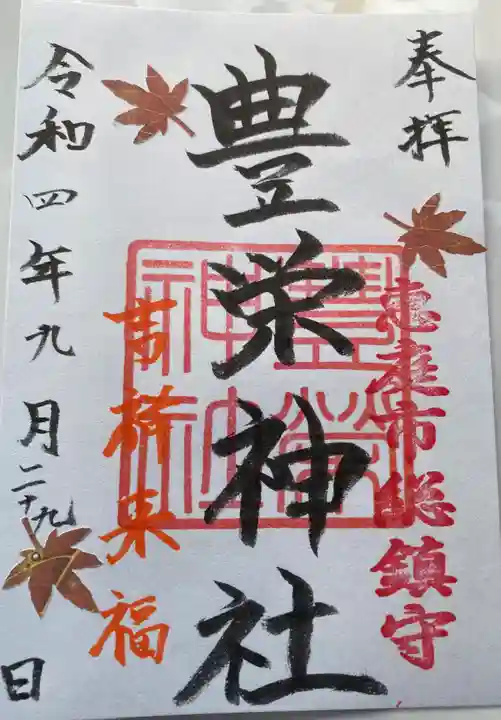 奉拝
恵庭市総鎮守
豊栄神社
豊榮
神社
吉祥来福
令和四年九月二十九日